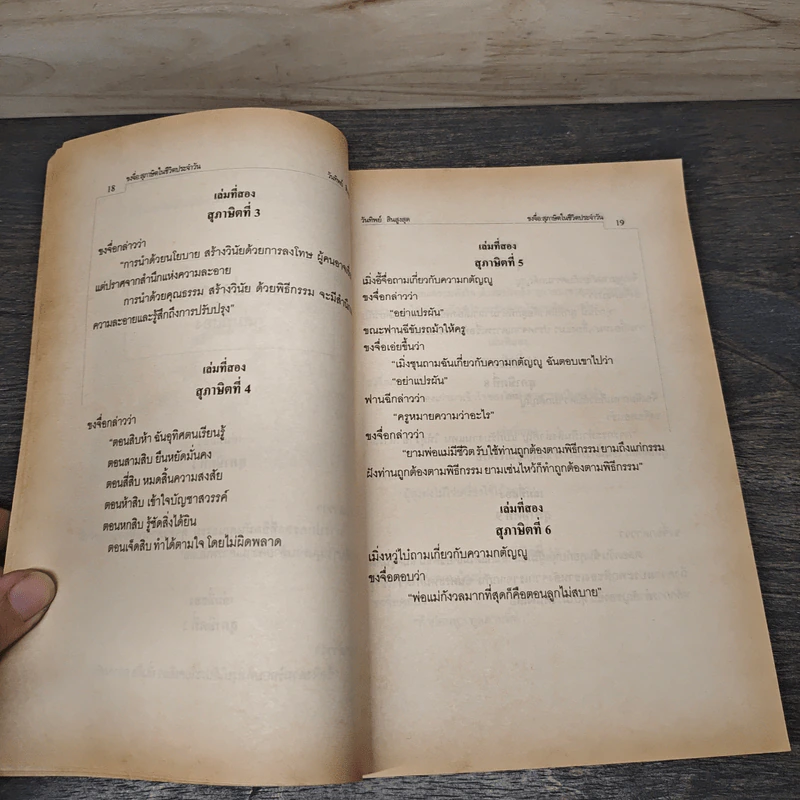 18 ขงจื่อ:สุภาษิตในชีวิตประจำวัน
วันทิพย์
เล่มที่สอง
สุภาษิตที่ 3
ขงจื่อกล่าวว่า
"การนำด้วยนโยบาย สร้างวินัยด้วยการลงโทษ ผู้คน
แต่ปราศจากสำนึกแห่งความละอาย
การนำด้วยคุณธรรม สร้างวินัย ด้วยพิธีกรรม จะมีสำนึก
ความละอายและรู้สึกถึงการปรับปรุง"
เล่มที่สอง
สุภาษิตที่ 4
ขงจื่อกล่าวว่า
"ตอนสิบห้า ฉันอุทิศตนเรียนรู้
ตอนสามสิบ ยืนหยัดมั่นคง
ตอนสี่สิบ หมดสิ้นความสงสัย
ตอนห้าสิบ เข้าใจบัญชาสวรรค์
ตอนหกสิบ รู้ชัดสิ่งได้ยิน
ตอนเจ็ดสิบ ทำได้ตามใจ โดยไม่ผิดพลาด
วันทิพย์ สินสูงสุด
ขงจื่อ:สุภาษิตในชีวิตประจำวัน 19
เล่มที่สอง
สุภาษิตที่ 5
เมิ่งอี้จื่อถามเกี่ยวกับความกตัญญู
ขงจื่อกล่าวว่า
"อย่าแปรผัน"
ขณะฟานฉีขับรถม้าให้ครู
ขงจื่อเอ่ยขึ้นว่า
"เมิ่งซุนถามฉันเกี่ยวกับความกตัญญู ฉันตอบเขาไปว่า
"อย่าแปรผัน"
ฟานฉีกล่าวว่า
"ครูหมายความว่าอะไร"
ขงจื่อกล่าวว่า
"ยามพ่อแม่มีชีวิต รับใช้ท่านถูกต้องตามพิธีกรรม ยามถึงแก่กรรม
ฝังท่านถูกต้องตามพิธีกรรม ยามเซ่นไหว้ก็ทำถูกต้องตามพิธีกรรม"
เล่มที่สอง
สุภาษิตที่ 6
เมิ่งหวู่ไป๋ถามเกี่ยวกับความกตัญญู
ขงจื่อตอบว่า
"พ่อแม่กังวลมากที่สุดก็คือตอนลูกไม่สบาย"